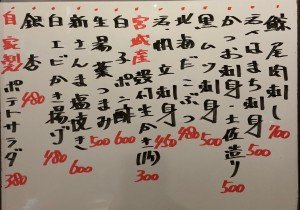 肉刺し 700
刺身
かつお刺身・土佐造り 500
黒ムツ刺身 500
だこぶつ 480
刺身 450
宮城産 殻付生かき(1ヶ) 300
白子ポン酢 600
生湯葉つまみ 500
新さんま塩焼き 600
白エビかき揚げ 480
銀杏 480
自家製ポテトサラダ 380